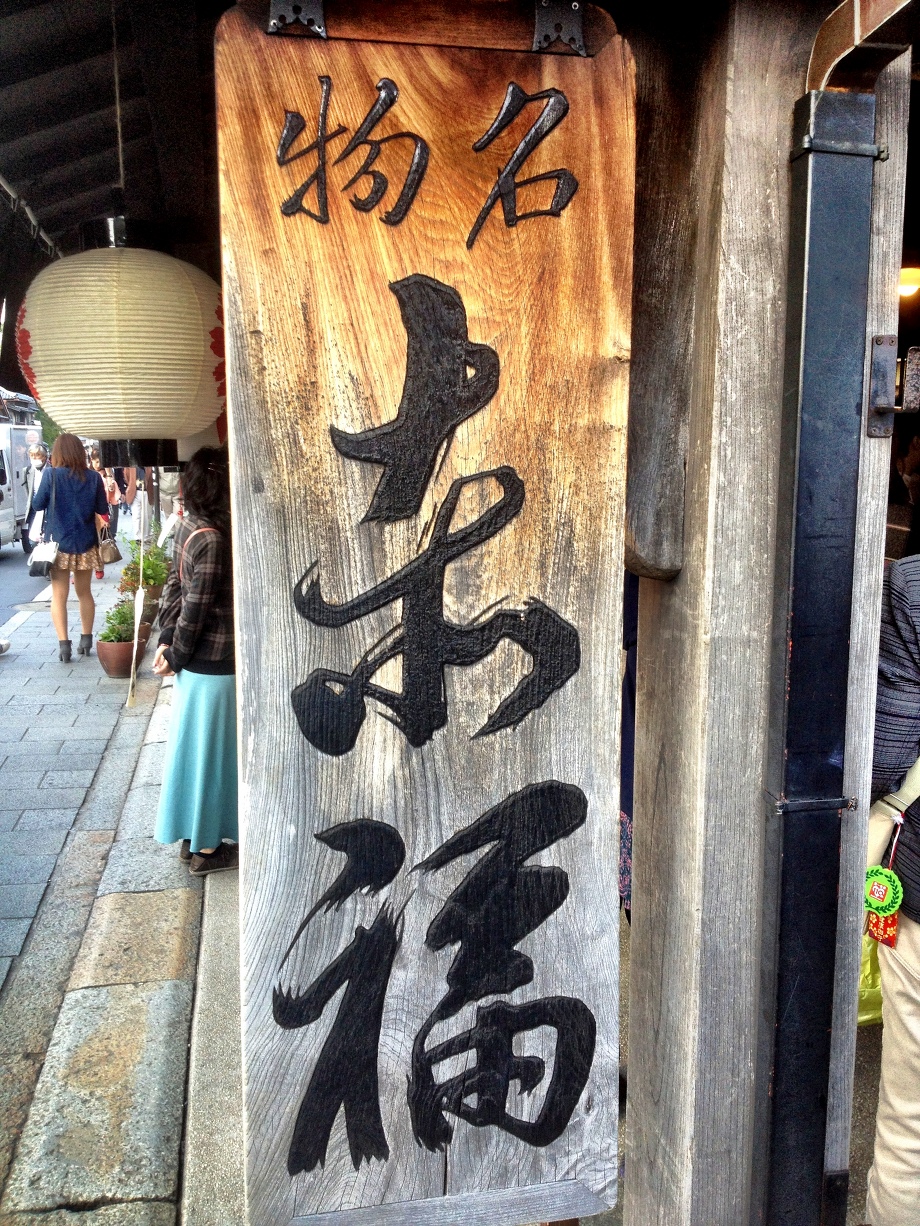 名物
赤福